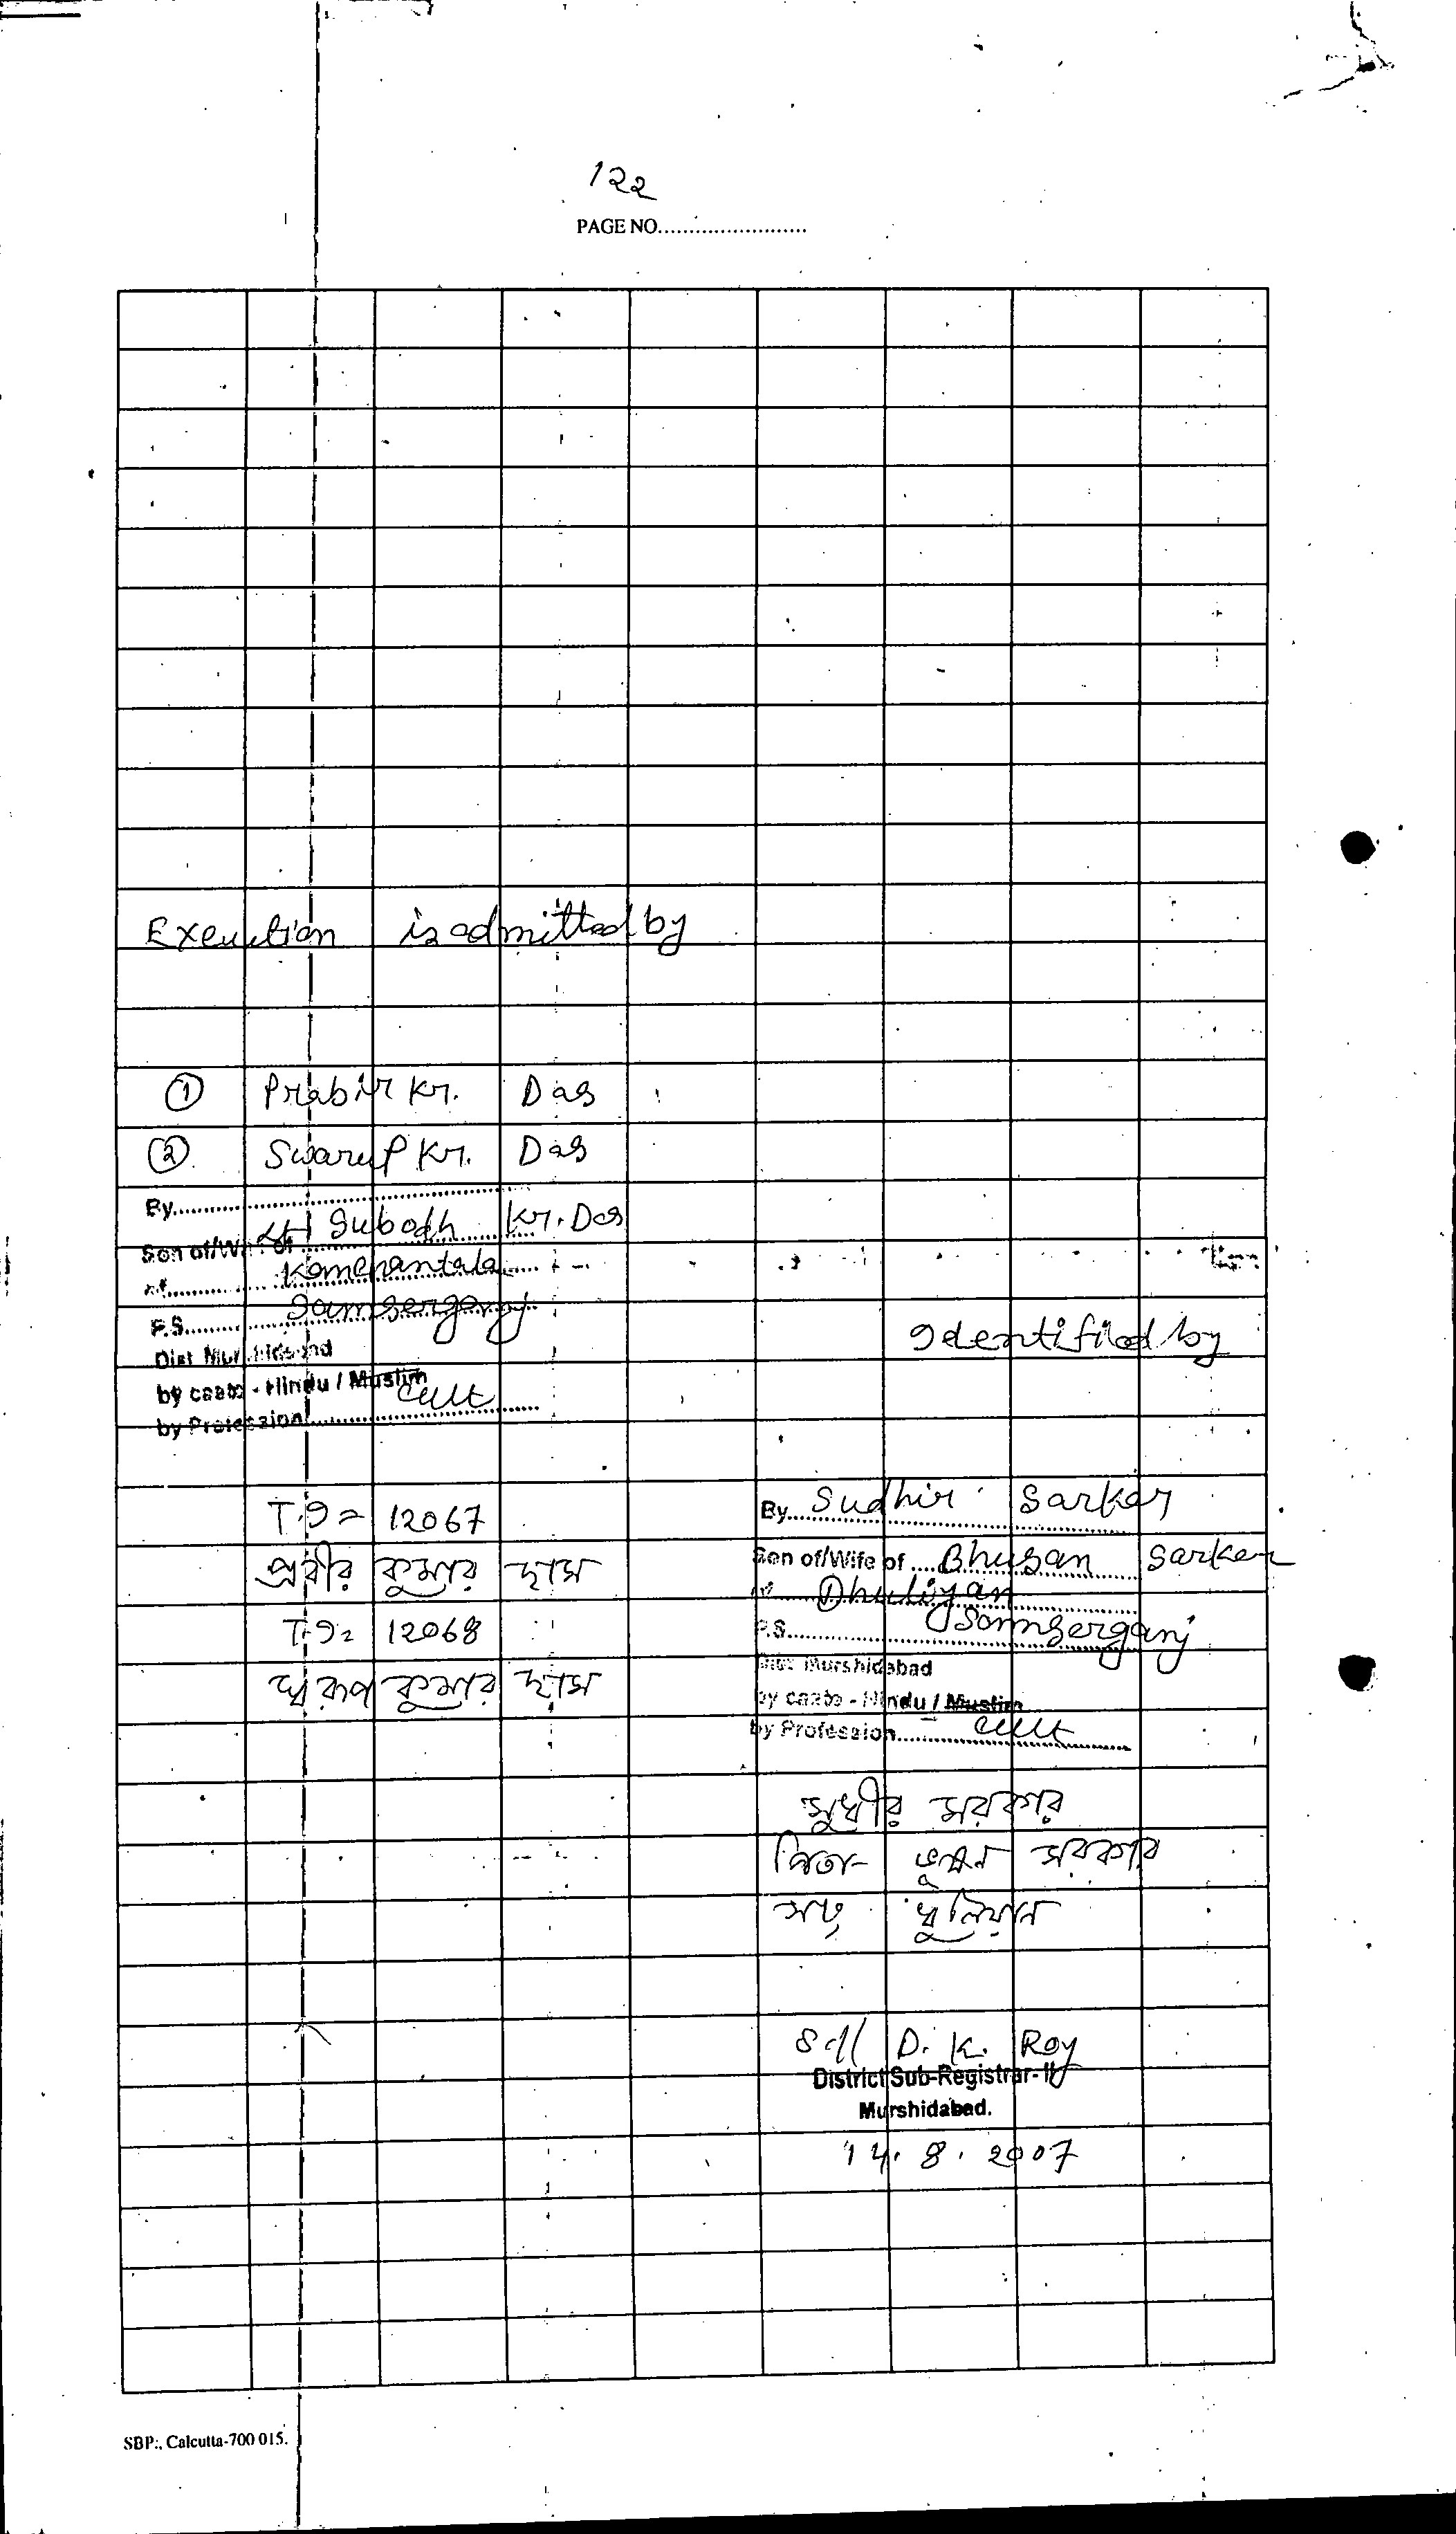 122
PAGE NO.........................
Execution is admitted by
① Prabir Kr. Das
② Swarup Kr. Das
By..........
Son of/Wife of Lt Subodh Kr. Das
of Kanchantala
P.S. Samserganj
Dist Murshidabad
by caste - Hindu / Muslim
by Profession Cult
Identified by
T.I = 12067
প্রবীর কুমার দাস
T.I = 12068
স্বরূপ কুমার দাস
By Sudhir Sarkar
Son of/Wife of Bhusan Sarkar
of Dhuliyan
P.S. Samserganj
Dist Murshidabad
by caste - Hindu / Muslim
by Profession Cult
সুধীর সরকার
পিতা ভূষন সরকার
সাং ধুলিয়ান
Sd/ D. K. Roy
District Sub-Registrar-II
Murshidabad.
14. 8. 2007
SBP:, Calcutta-700 015.